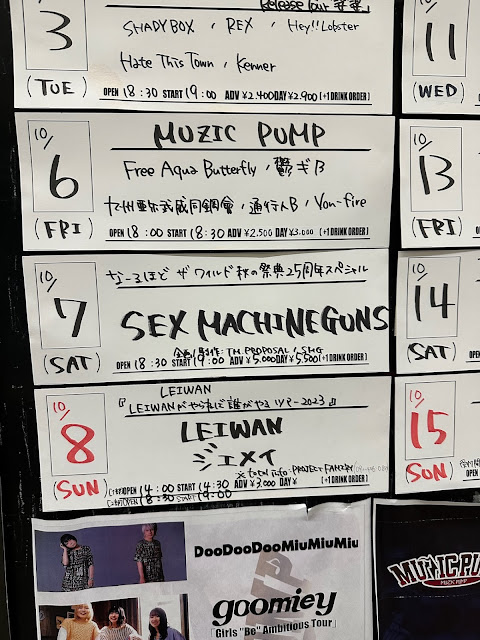 Release Tour
3
(TUE)
SHADY BOX , REX , Hey!!Lobster
Hate This Town , Kenner
OPEN 18:30 START 19:00 ADV ¥2.400 DAY ¥2.900 [+1 DRINK ORDER]
11
(WED)
10/
6
(FRI)
MUZIC PUMP
Free Aqua Butterfly , 鬱ギB
九州亜尓武威同鋼會 , 通行人B , Von-fire
OPEN 18:00 START 18:30 ADV ¥2.500 DAY ¥3.000 [+1 DRINK ORDER]
10/
13
(FRI)
10/
7
(SAT)
なーるほど ザ ワイルド 秋の祭典25周年スペシャル
SEX MACHINEGUNS
企画/制作: TM PROPOSAL / SMG
OPEN 18:30 START 19:00 ADV ¥5.000 DAY ¥5.500 [+1 DRINK ORDER]
10/
14
(SAT)
10/
8
(SUN)
LEIWAN
『LEIWANがやらねば誰がやるツアー2023』
LEIWAN
ジェメイ
※total info: PROJECT FAMIRY
OPEN 14:00 START 14:30 ADV ¥3,000 DAY ¥ [+1 DRINK ORDER]
OPEN 18:30 START 19:00
10/
15
(SUN)
DooDooDooMiuMiuMiu
goomiey
「Girls "Be" Ambitious Tour」
MUZIC PU
MUZIK PUMP